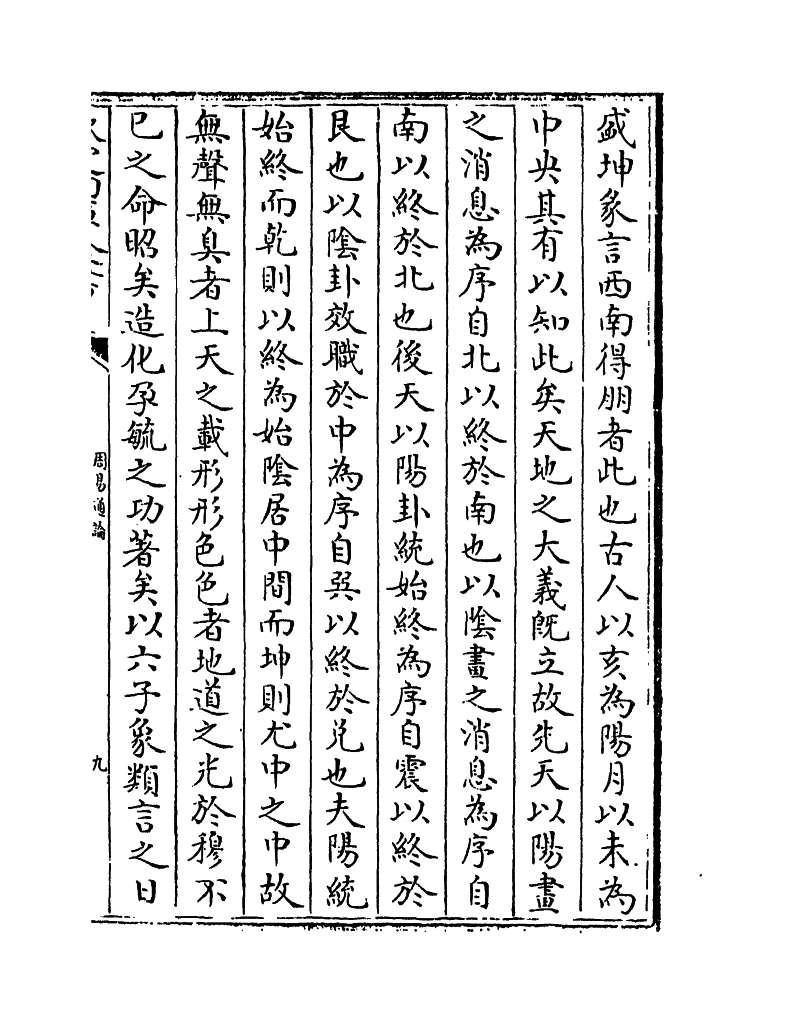 盛坤彖言西南得朋者此也古人以亥為陽月以未為
中央其有以知此矣天地之大義既立故先天以陽畫
之消息為序自北以終於南也以陰畫之消息為序自
南以終於北也後天以陽卦統始終為序自震以終於
艮也以陰卦效職於中為序自巽以終於兌也夫陽統
始終而乾則以終為始陰居中間而坤則尤中之中故
無聲無臭者上天之載形形色色者地道之光於穆不
已之命昭矣造化孕毓之功著矣以六子象類言之日
周易通論
九